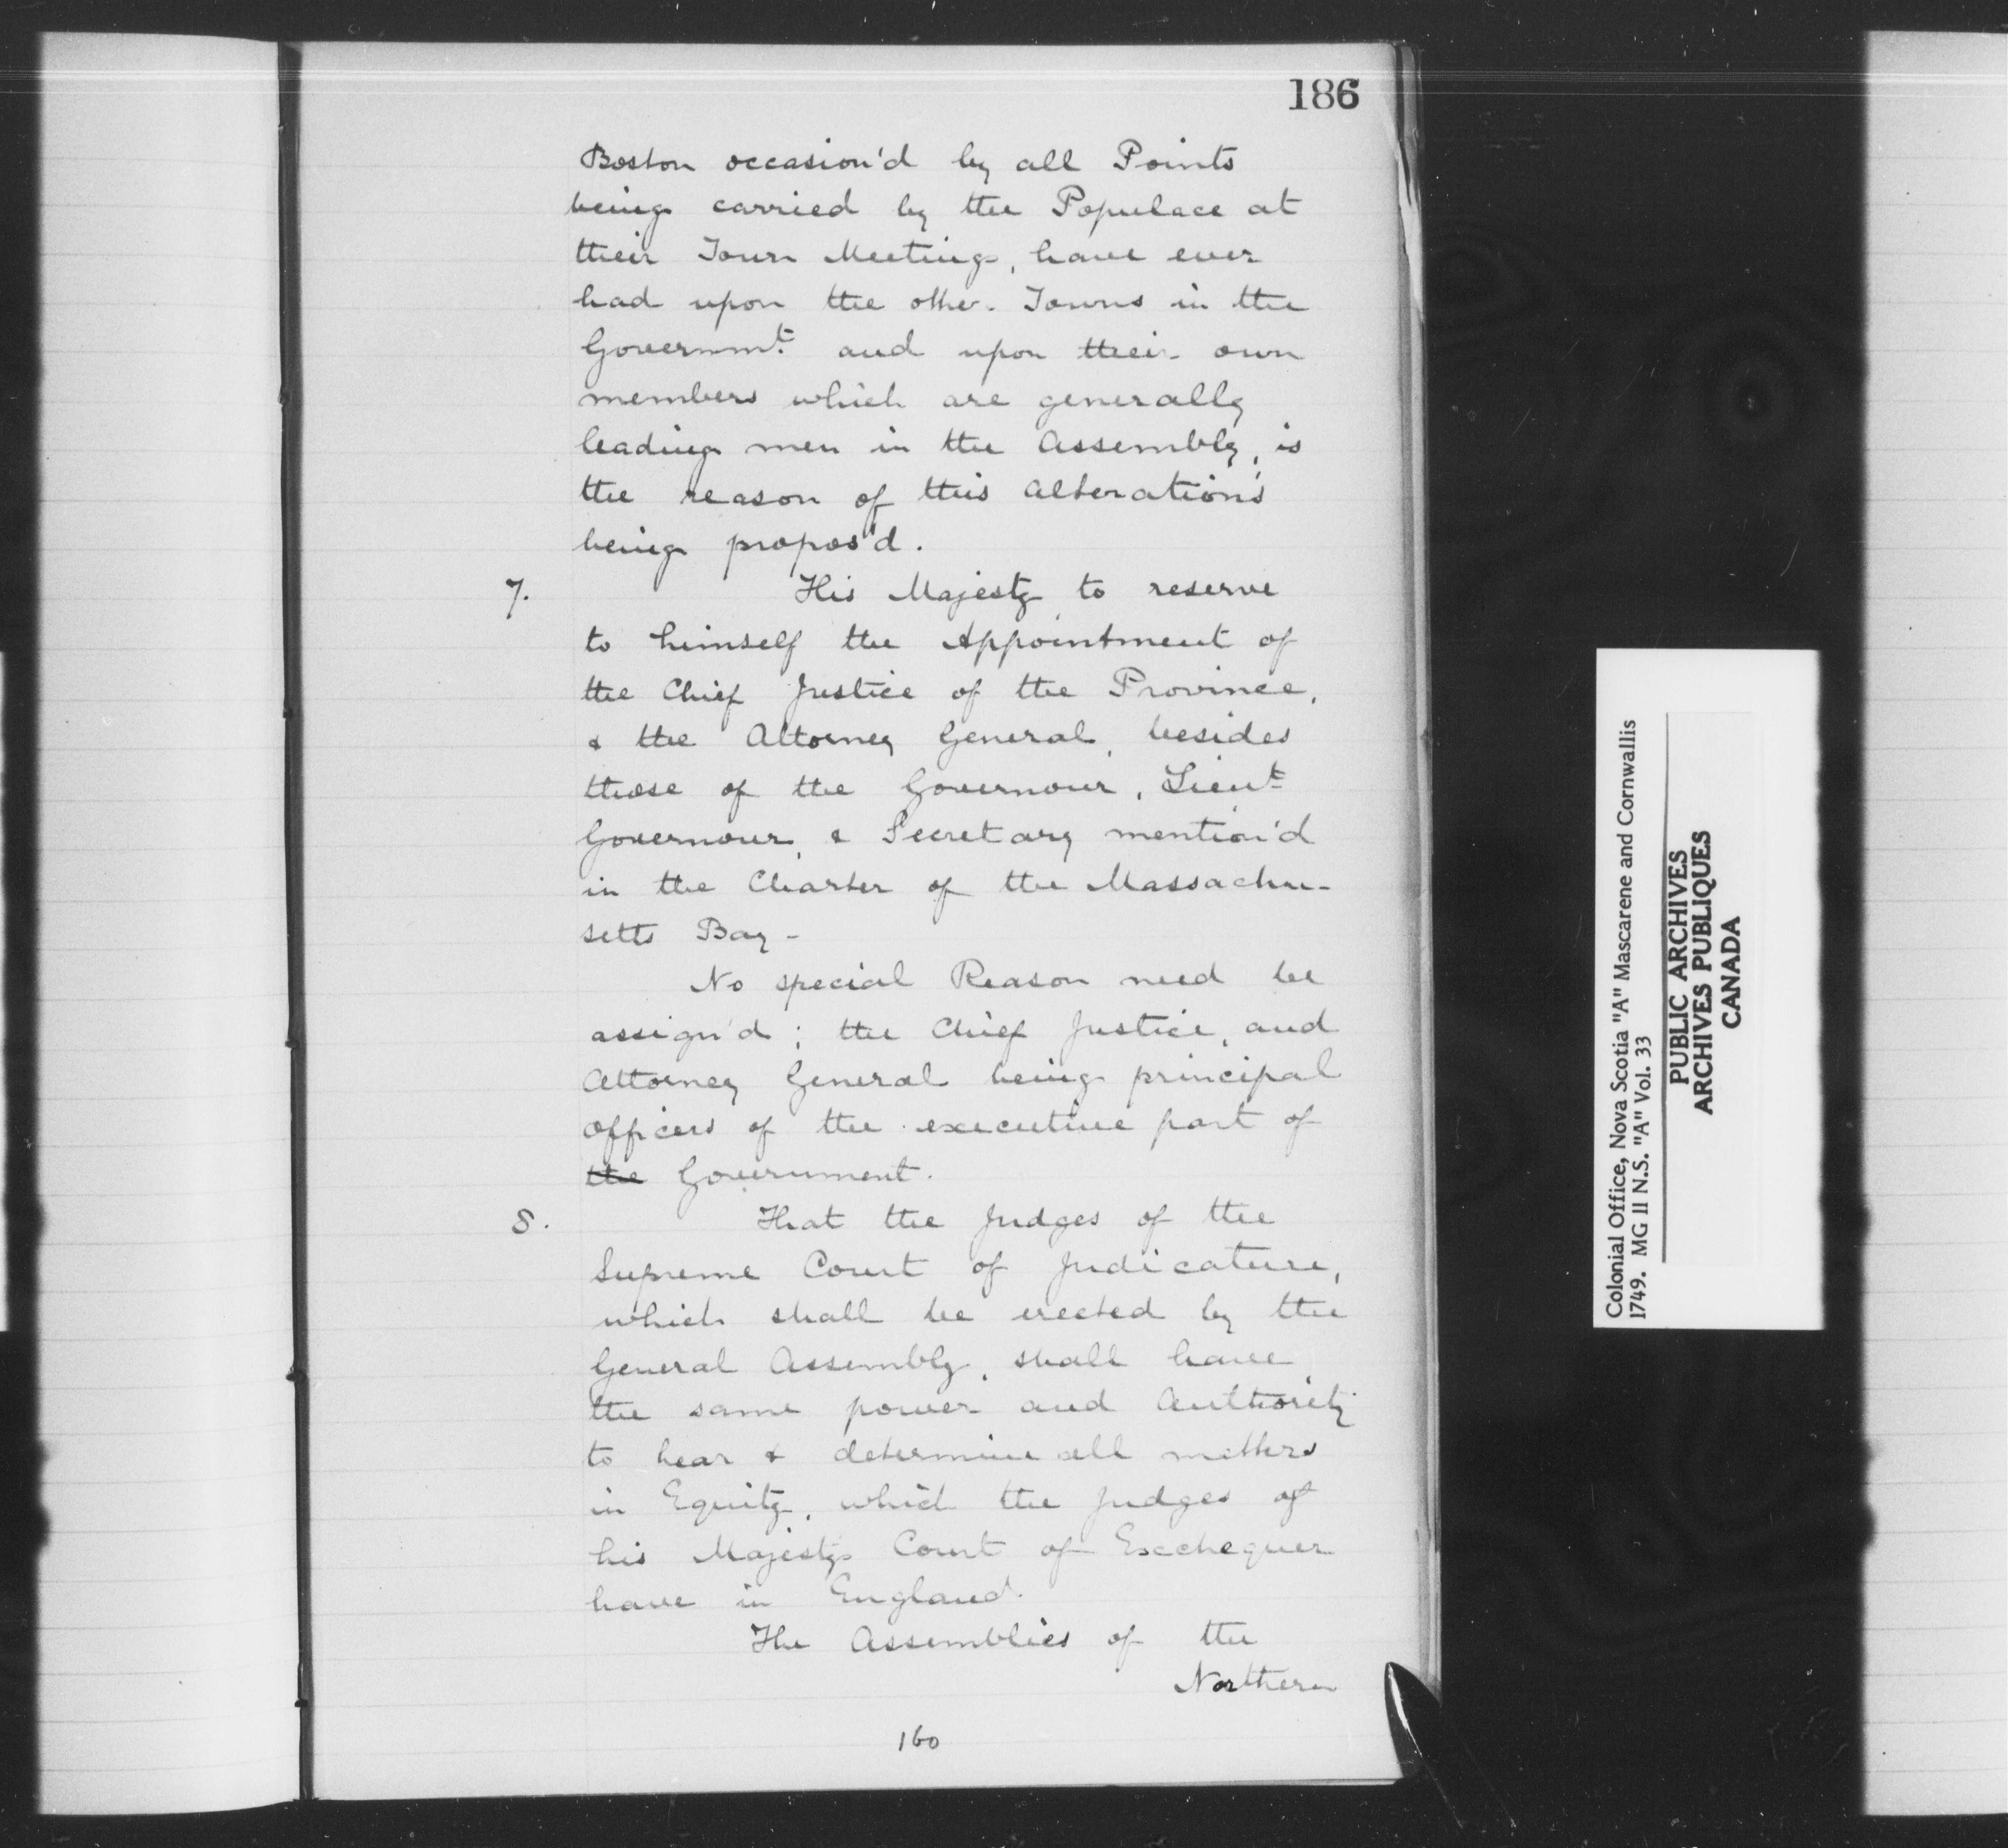 186
Boston occasion'd by all Points
being carried by the Populace at
their Town Meeting, have ever
had upon the other Towns in the
Governmt. and upon their own
members which are generally
leading men in the Assembly, is
the reason of this Alteration's
being propos'd.
7. His Majesty to reserve
to himself the Appointment of
the Chief Justice of the Province,
& the Attorney General, besides
those of the Governour, Lieut
Governour, & Secretary mention'd
in the Charter of the Massachu-
setts Bay -
No special Reason need be
assign'd; the Chief Justice, and
Attorney General being principal
Officers of the executive part of
the Government.
8. That the Judges of the
Supreme Court of Judicature,
which shall be erected by the
General Assembly, shall have
the same power and Authority
to hear & determine all matters
in Equity, which the Judges of
his Majestys Court of Exchequer
have in England.
The Assemblies of the
Northern
160
Colonial Office, Nova Scotia "A" Mascarene and Cornwallis
1749. MG 11 N.S. "A" Vol. 33
PUBLIC ARCHIVES
ARCHIVES PUBLIQUES
CANADA